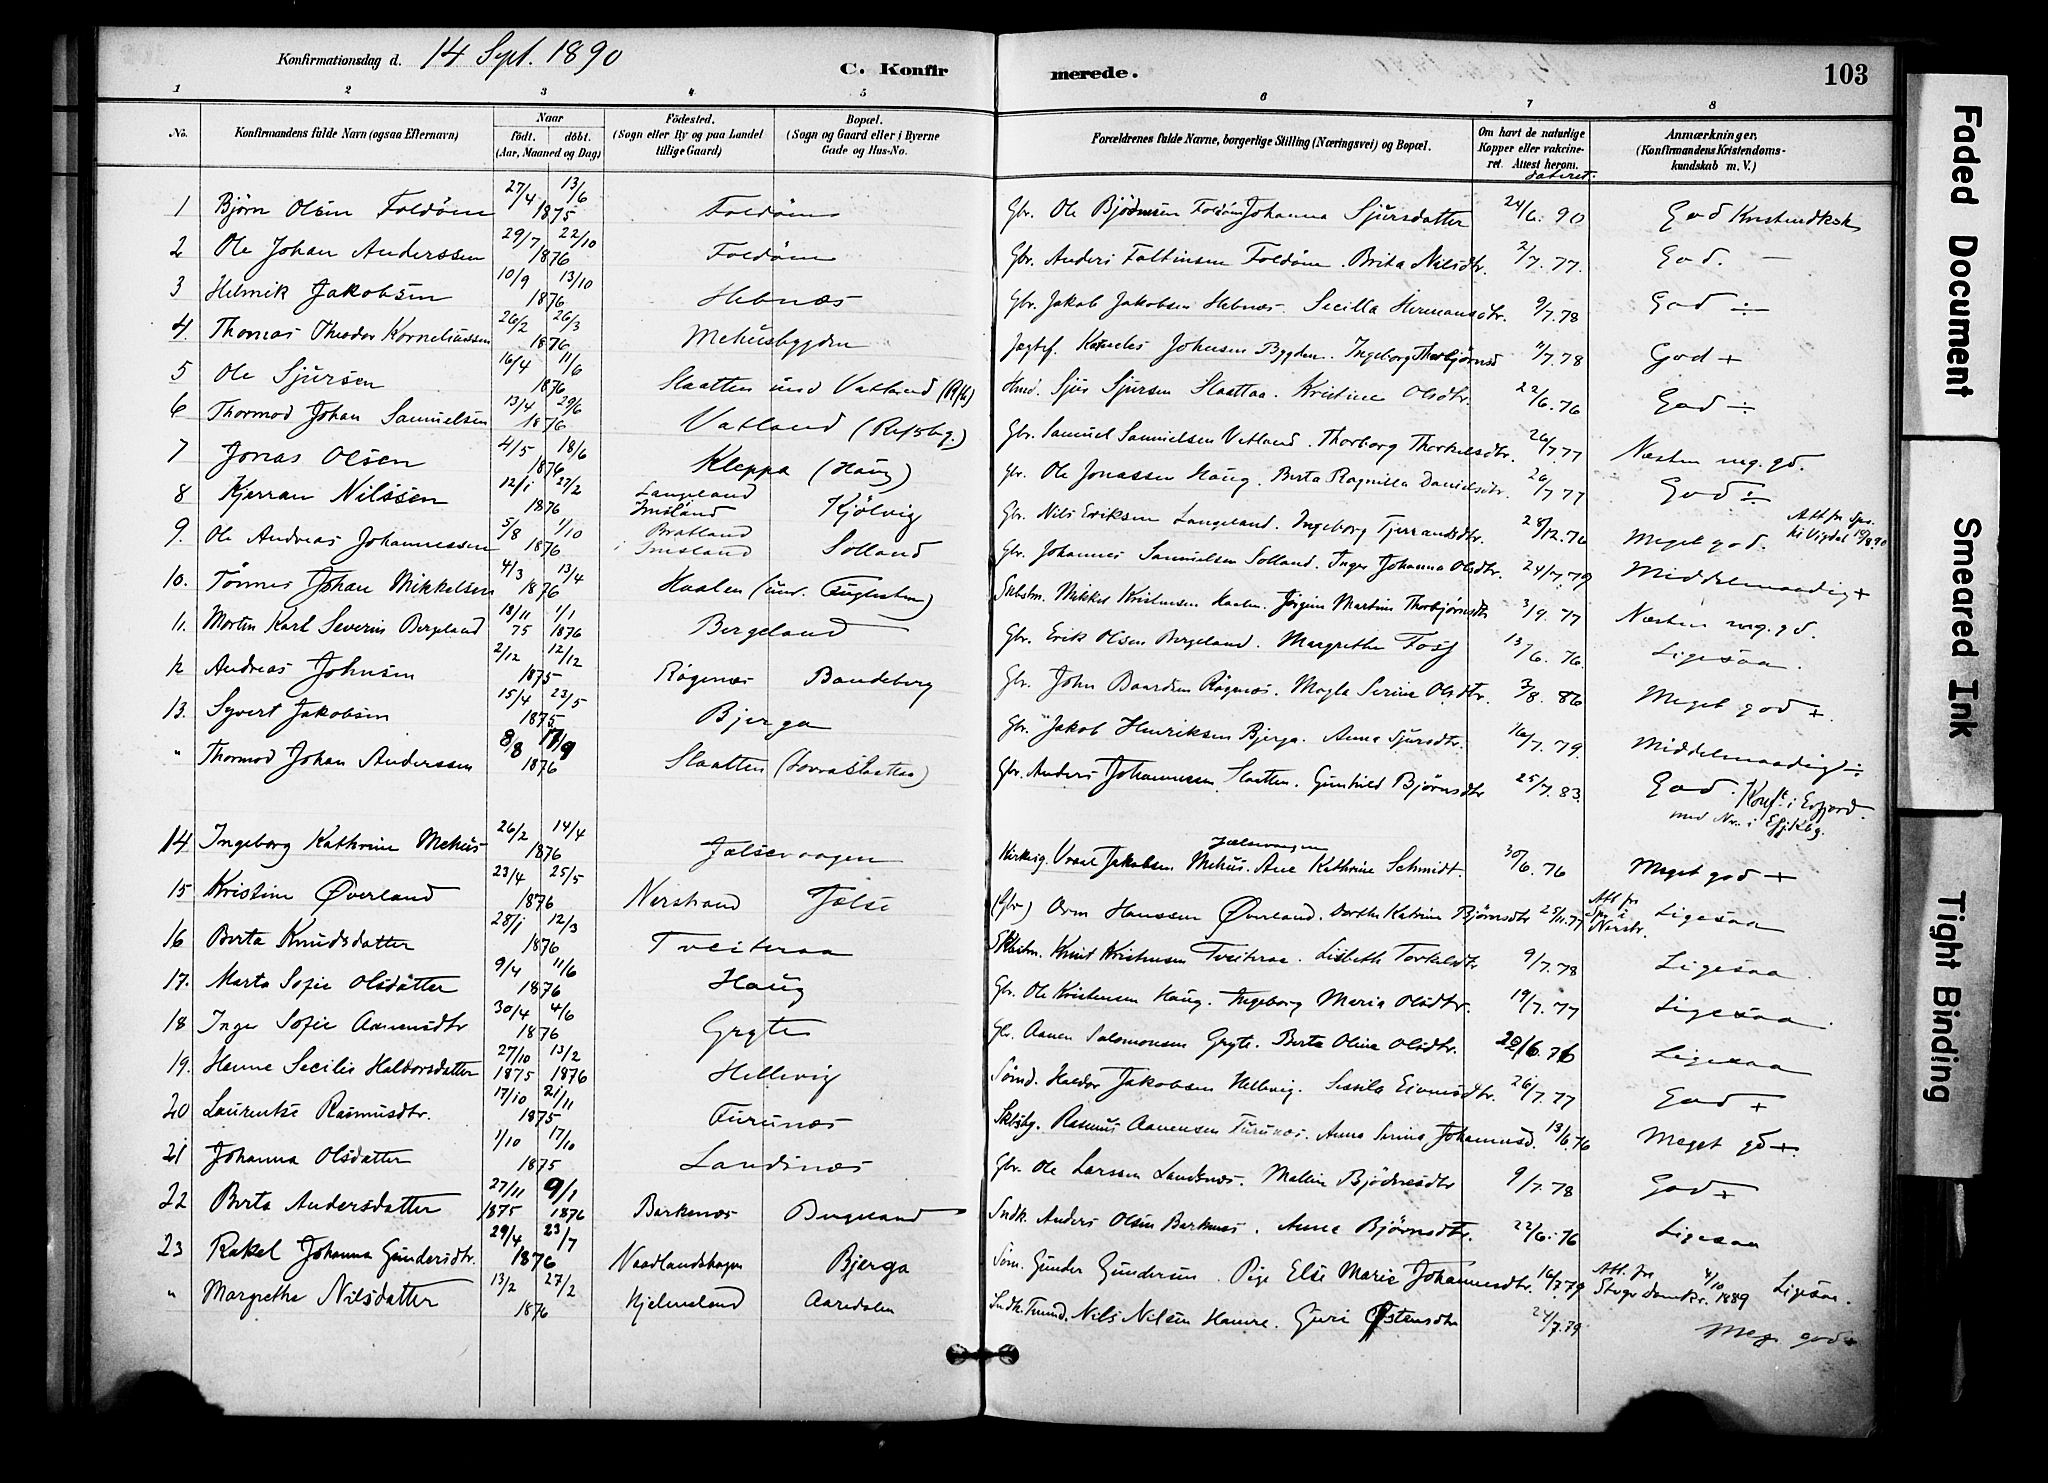 Konfirmationsdag d. 14 Sept. 1890
C. Konfirmerede. 103
1 2 3 4 5 6 7 8
No. Konfirmandens fulde Navn (ogsaa Efternavn) Naar født. døbt. (Aar, Maaned og Dag) Fødested. (Sogn eller By og paa Landet tillige Gaard) Bopæl. (Sogn og Gaard eller i Byerne Gade og Hus-No. Forældrenes fulde Navne, borgerlige Stilling (Næringsvei) og Bopæl. Om havt de naturlige Kopper eller vakcineret. Attest herom. dateret. Anmærkninger, (Konfirmandens Kristendomskundskab m. V.)
1 Bjørn Olsen Foldøen 27/4 13/6 1875 Foldøen Gbr. Ole Bjødnsen Foldøen Johanna Sjursdatter 24/6. 90 God Kristendksk
2 Ole Johan Anderssen 29/7 22/10 1876 Foldøen Gbr. Anders Faltinsen Foldøen. Brita Nilsdtr. 2/7. 77. God. —
3 Helmik Jakobsen 10/9 13/10 1876 Hebnæs Gbr. Jakob Jakobsen Hebnæs. Secilla Hermansdtr. 9/7. 78 God ÷
4. Thomas Theodor Korneliussen 26/2 26/3 1876 Mehusbygden Jagtef. Johnsen Bygden. Ingeborg Thorbjørnsd 11/7. 78 God +
5 Ole Sjursen 16/4 11/6 1876 Slaatten und Vatland Hmd. Sjur Sjursen Slaattaa. Kristine Olsdtr. 22/6. 76 God ÷
6 Thormod Johan Samuelsen 13/4 29/6 1876 Vatland Gbr. Samuel Samuelsen Vatland. Thorborg Thorkelsdtr. 26/7. 77 Næsten meg. gd.
7 Jonas Olsen 4/5 18/6 1876 Kleppa (Haug) Gbr. Ole Jonassen Haug. Berta Ragnilla Danielsdtr. 26/7 77 God ÷
8 Kjerran Nilssen 12/1 27/2 1876 Langeland Imsland Kjølvig Gbr. Nils Eriksen Langeland. Ingeborg Tjerrandsdtr. 28/12. 76 Meget god. Att fr Spr.
9. Ole Andreas Johannessen 5/8 1/10 1876 Bratland i Imsland Solland Gbr. Johannes Samuelsen Solland. Inger Johanna Olsdtr. 24/7. 79 Middelmaadig +
10. Tønnes Johan Mikkelsen 4/3 13/4 1876 Haalen (und. Fuglesten) Skbstm. Mikkel Kristensen Haalen. Jørgine Martine Thorbjørnsdtr 3/9. 77 Næsten meg. gd.
11. Morten Karl Severin Bergeland 18/11 75 1/1 1876 Bergeland Gbr. Erik Olsen Bergeland. Margrethe Fosj 13/6. 76. Ligesaa.
12 Andreas Johnsen 2/12 12/12 1875 Røgenæs Bandeberg Gbr. John Baardsen Røgnæs. Magla Serine Olsdtr. 3/8. 86 Meget god +.
13. Syvert Jakobsen 15/4 23/5 1875 Bjerga Gbr. Jakob Henriksen Bjerga. Anna Sjursdtr. 16/7. 79. Middelmaadig ÷
" Thormod Johan Anderssen 8/8 17/9 1876 Slaatten Gbr. Anders Johannessen Slaatten. Gunhild Bjørnsdtr 25/7. 83. God. Konft. i Erfjord.
14 Ingeborg Kathrine Mehus 26/2 14/4 1876 Jælsevaagen Kirksg. Jakobsen Mehus. Jælsevaagen Ane Kathrine Schmidt. 30/6. 76 Meget god +
15 Kristine Øverland 23/4 25/5 1876 Nerstrand Jælse (Gbr) Orm Hanssen Øverland. Dorthe Katrine Bjørnsdtr 25/11.77 Att fr Spr i Nerstr. Ligesaa
16 Berta Knudsdatter 28/1 12/3 1876 Tveiteraa Skbstm. Knut Kristensen Tveiteraa. Lisbeth Torkelsdtr 9/7. 78 Ligesaa
17. Marta Sofie Olsdatter 9/4 11/6 1876 Haug Gbr. Ole Kristensen Haug. Ingeborg Maria Olsdtr. 19/7. 77 Ligesaa
18 Inger Sofie Aanensdtr 30/4 4/6 1876 Gryte Gbr. Aanen Salomonsen Gryte. Berta Olina Olsdtr. 22/6. 76 Ligesaa
19. Hanne Secilie Haldorsdatter 27/10 1875 13/2 1876 Hellevig Haldor Jakobsen Hellevig. Sissila Eivensdtr. 26/7. 77 God +
20 Laurentse Rasmusdtr. 17/10 21/11 1875 Furunæs Rasmus Aanensen Furunæs. Anna Serine Johannesd. 13/6. 76 Meget gd +.
21 Johanna Olsdatter 1/10 17/10 1875 Landsnæs Gbr. Ole Larssen Landsnæs. Mallene Bjødnesdtr 9/7. 78 God +
22 Berta Andersdatter 27/11 1875 9/1 1876 Barkenæs Bergeland Indk. Anders Olsen Barknæs. Anne Bjørnsdtr. 22/6. 76 Ligesaa
23 Rakel Johanna Gundersdtr. 29/4 23/7 1876 Naadlandshagen Bjerga Søm. Gunder Gundersen. Pige Else Marie Johannesdtr. 16/7.79 Att. fra Stvgr domkr. 4/10 1889 Ligesaa.
" Margrethe Nilsdatter 13/2 27/2 1876 Hjelmeland Aaredalen Indk. Nils Nilsen Hamre. Guri Østensdtr 24/7.79 Meg. god +
Faded Document
Smeared Ink
Tight Binding